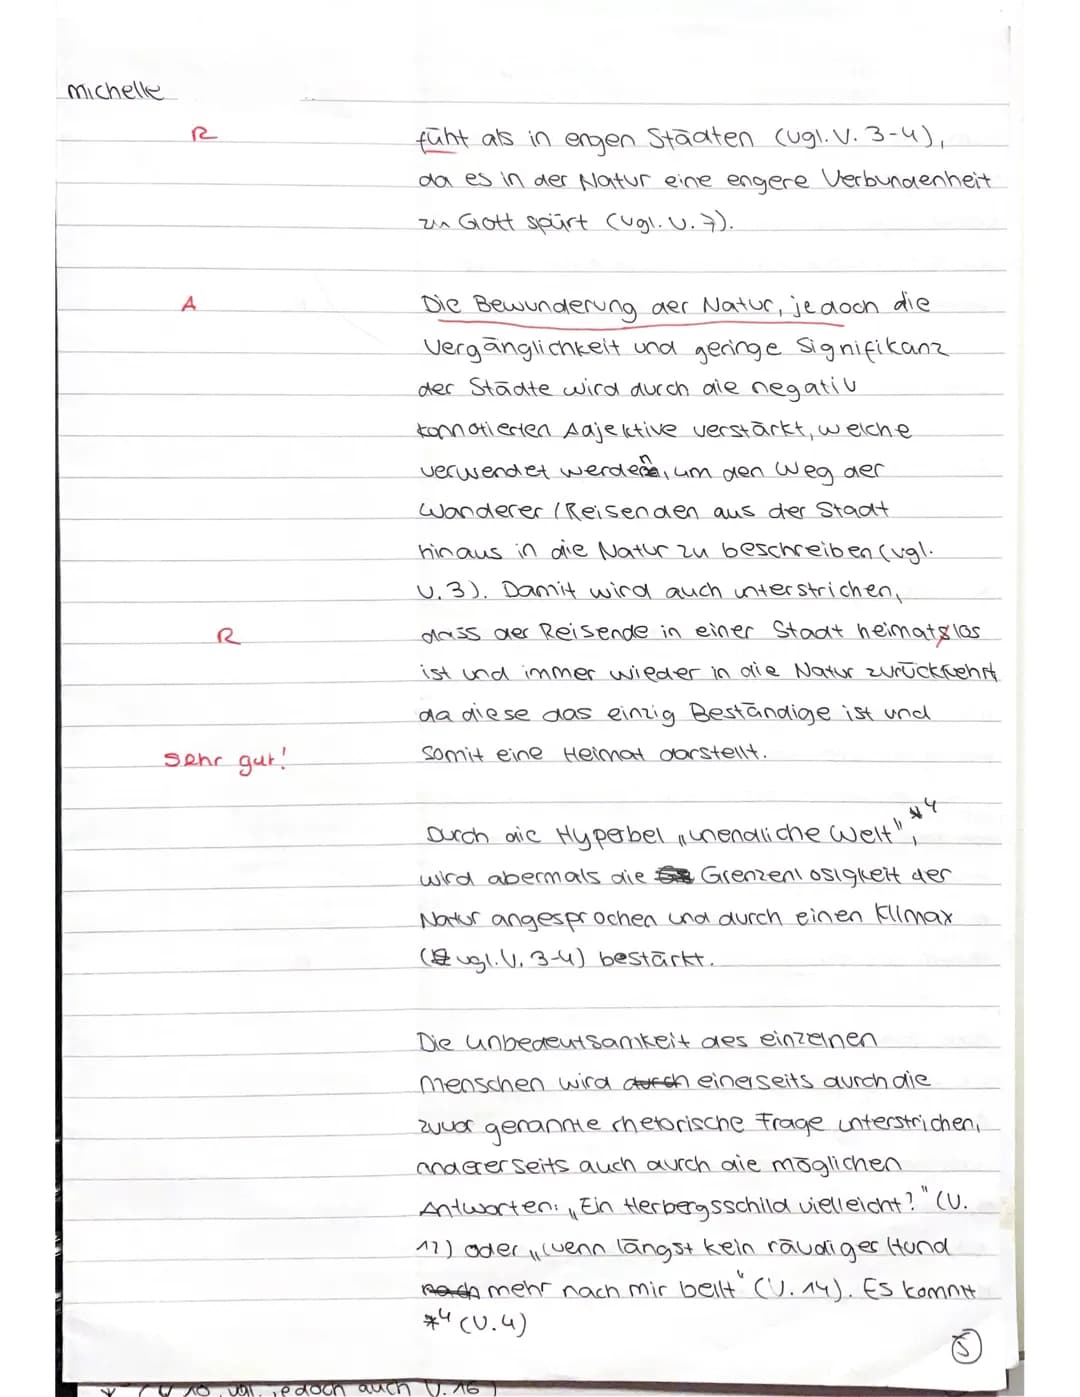 Michelle
R
füht als in engen Städten (vgl. V. 3-4),
da es in der Natur eine engere Verbundenheit
zu Gott spürt (vgl. V. 7).
A
Die Bewunderung der Natur, jedoch die
Vergänglichkeit und geringe Signifikanz
der Städte wird durch die negativ
konnotierten Adjektive verstärkt, welche
verwendet werden, um den Weg der
Wanderer / Reisenden aus der Stadt
hinaus in die Natur zu beschreiben (vgl.
V. 3). Damit wird auch unterstrichen,
R
dass der Reisende in einer Stadt heimatslos
ist und immer wieder in die Natur zurückkehrt
da diese das einzig Beständige ist und
Sehr gut!
somit eine Heimat darstellt.
Durch die Hyperbel „unendliche Welt", *4
wird abermals die Grenzenlosigkeit der
Natur angesprochen und durch einen Klimax
(vgl. V. 3-4) bestärkt.
Die Unbedeutsamkeit des einzelnen
Menschen wird durch einerseits durch die
zuvor genannte rhetorische Frage unterstrichen,
andererseits auch durch die möglichen
Antworten: „Ein Herbergsschild vielleicht?" (V.
12) oder „wenn längst kein räudiger Hund
noch mehr nach mir bellt" (V. 14). Es kommt
*4 (V. 4)
5
jedoch auch V. 16)